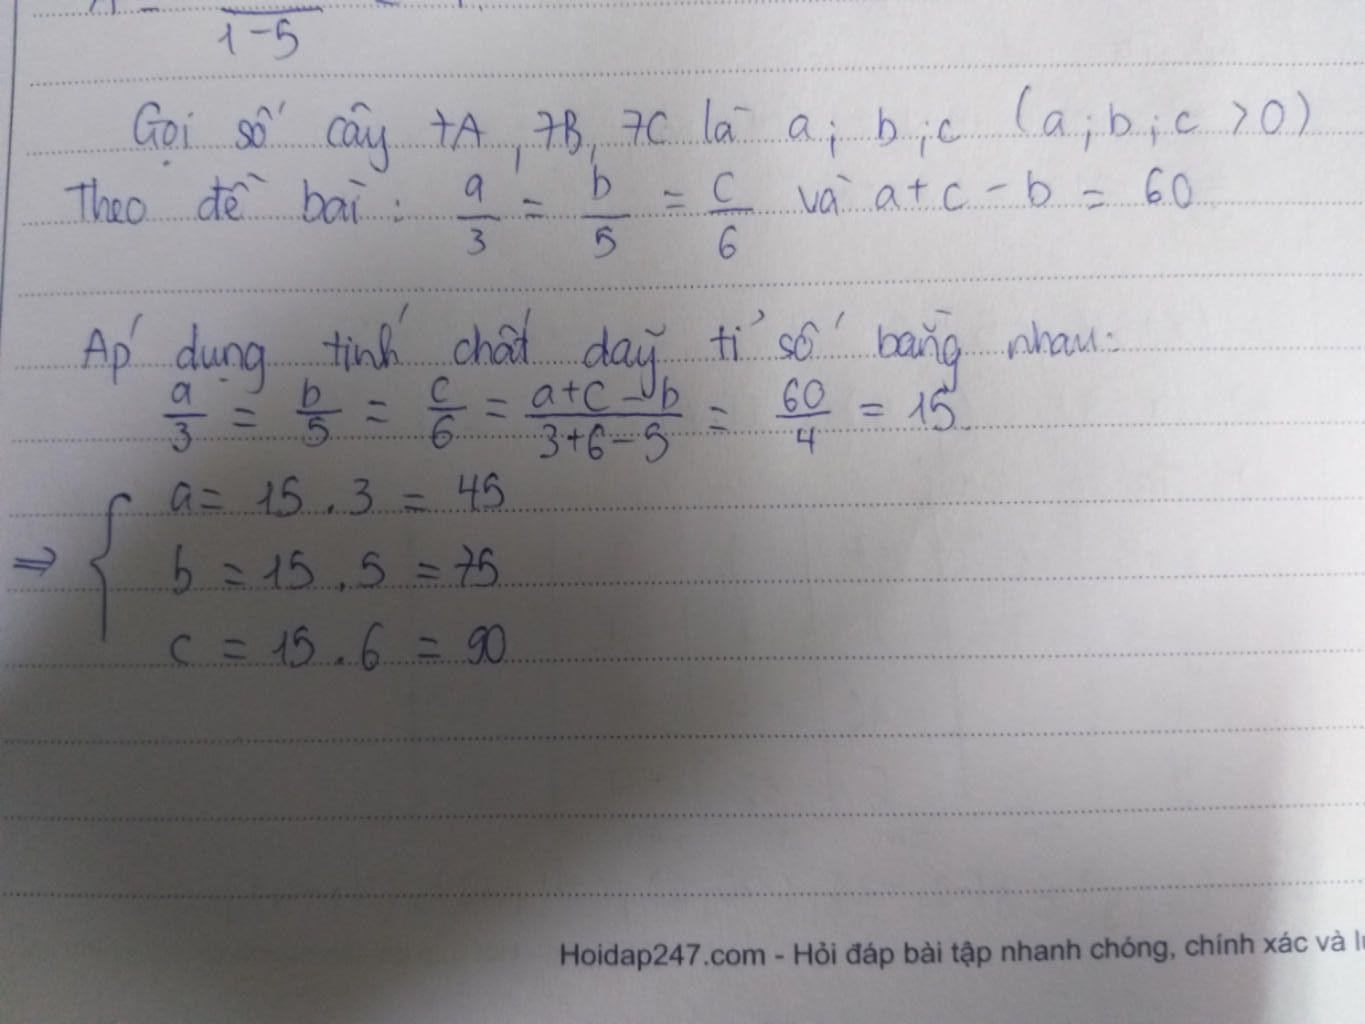 1-5
Gọi số cây 7A, 7B, 7C là a; b; c (a; b; c > 0)
Theo đề bài: a/3 = b/5 = c/6 và a + c - b = 60
Áp dụng tính chất dãy tỉ số bằng nhau:
a/3 = b/5 = c/6 = (a+c-b)/(3+6-5) = 60/4 = 15
a = 15 . 3 = 45
⇒ { b = 15 . 5 = 75
c = 15 . 6 = 90
Hoidap247.com - Hỏi đáp bài tập nhanh chóng, chính xác và